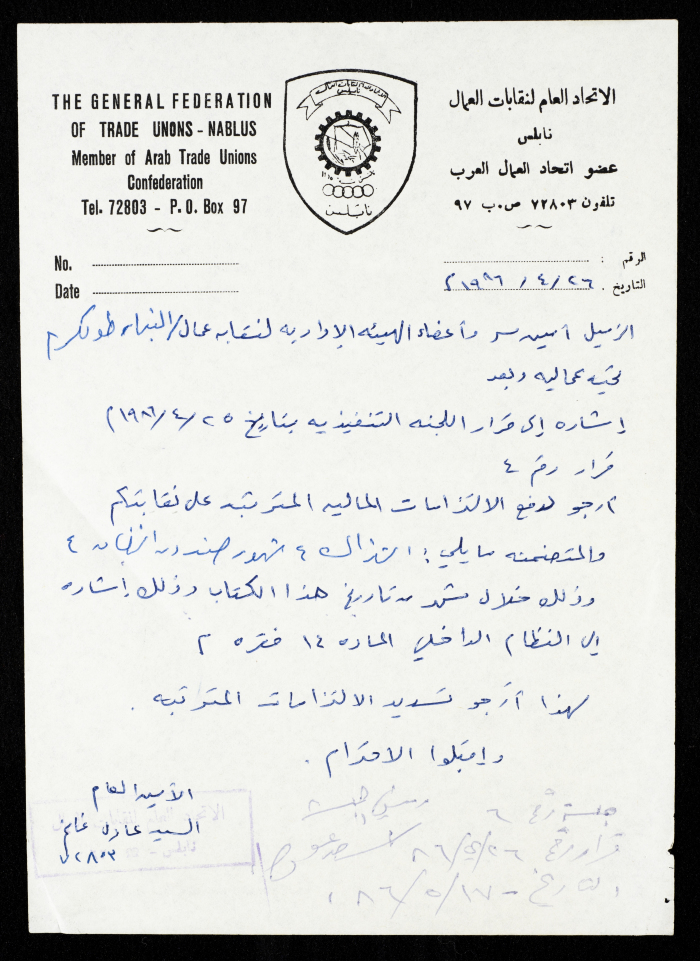 THE GENERAL FEDERATION
OF TRADE UNONS - NABLUS
Member of Arab Trade Unions
Confederation
Tel. 72803 - P.O. Box 97
نابلس
الاتحاد العام لنقابات العمال
نابلس
عضو اتحاد العمال العرب
تلفون ٧٢٨٠٣ ص.ب ٩٧
No.
Date
الرقم :
التاريخ . ٢٦ / ٤ / ١٩٨٦م
الزميل أمين سر وأعضاء الهيئه الإداريه لنقابة عمال البناء طولكرم
تحيه عماليه وبعد
إشاره إلى قرار اللجنه التنفيذيه بتاريخ ٢٥ / ٤ / ١٩٨٦م
قرار رقم ٤
أرجو دفع الالتزامات الماليه المترتبه على نقابتكم
والمتضمنه ما يلي : اشتراك ٤ شهور صندوق ٤
وذلك خلال شهر من تاريخ هذا الكتاب وذلك إشاره
إلى النظام الداخلي الماده ١٤ فقره ٢
لهذا أرجو تسديد الالتزامات المترتبه .
واقبلوا الاحترام .
الأمين العام
السيد عادل غانم
جلسة رقم ٦
قرار رقم
التاريخ ١٧ / ٥ / ٨٦